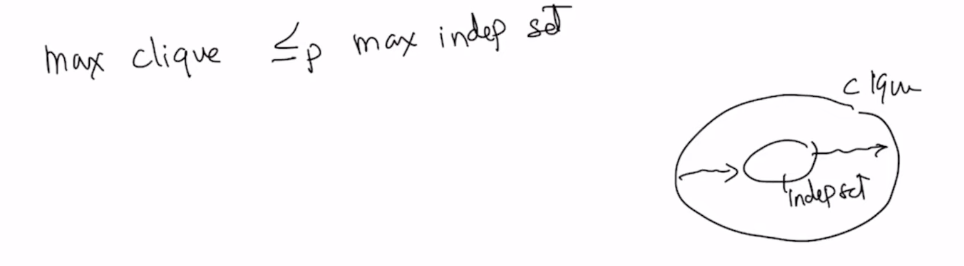 max clique ≤p max indep set
clique
indep set